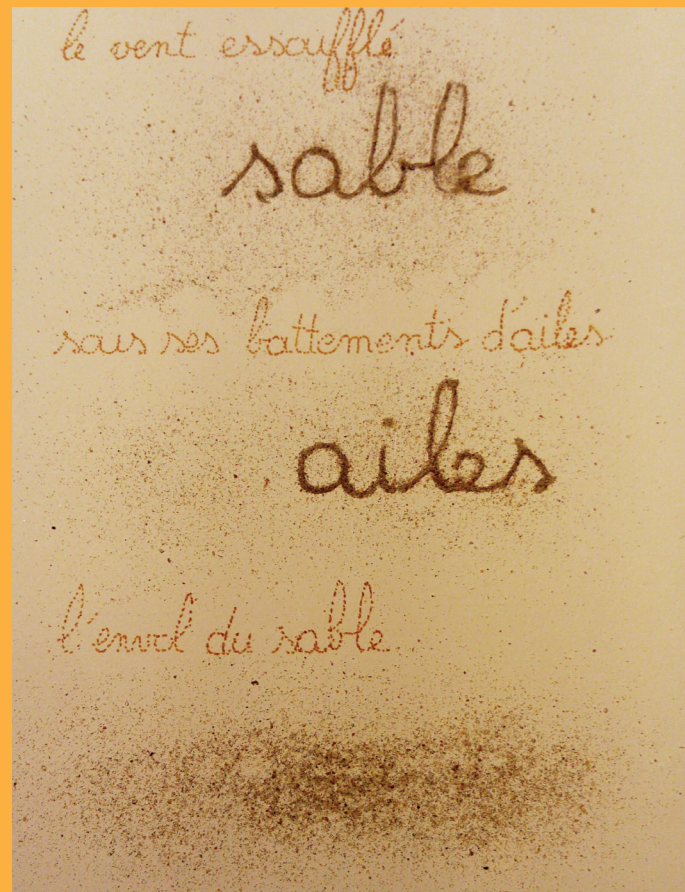 le vent essoufflé
sable
sous ses battements d'ailes
ailes
l'envol du sable